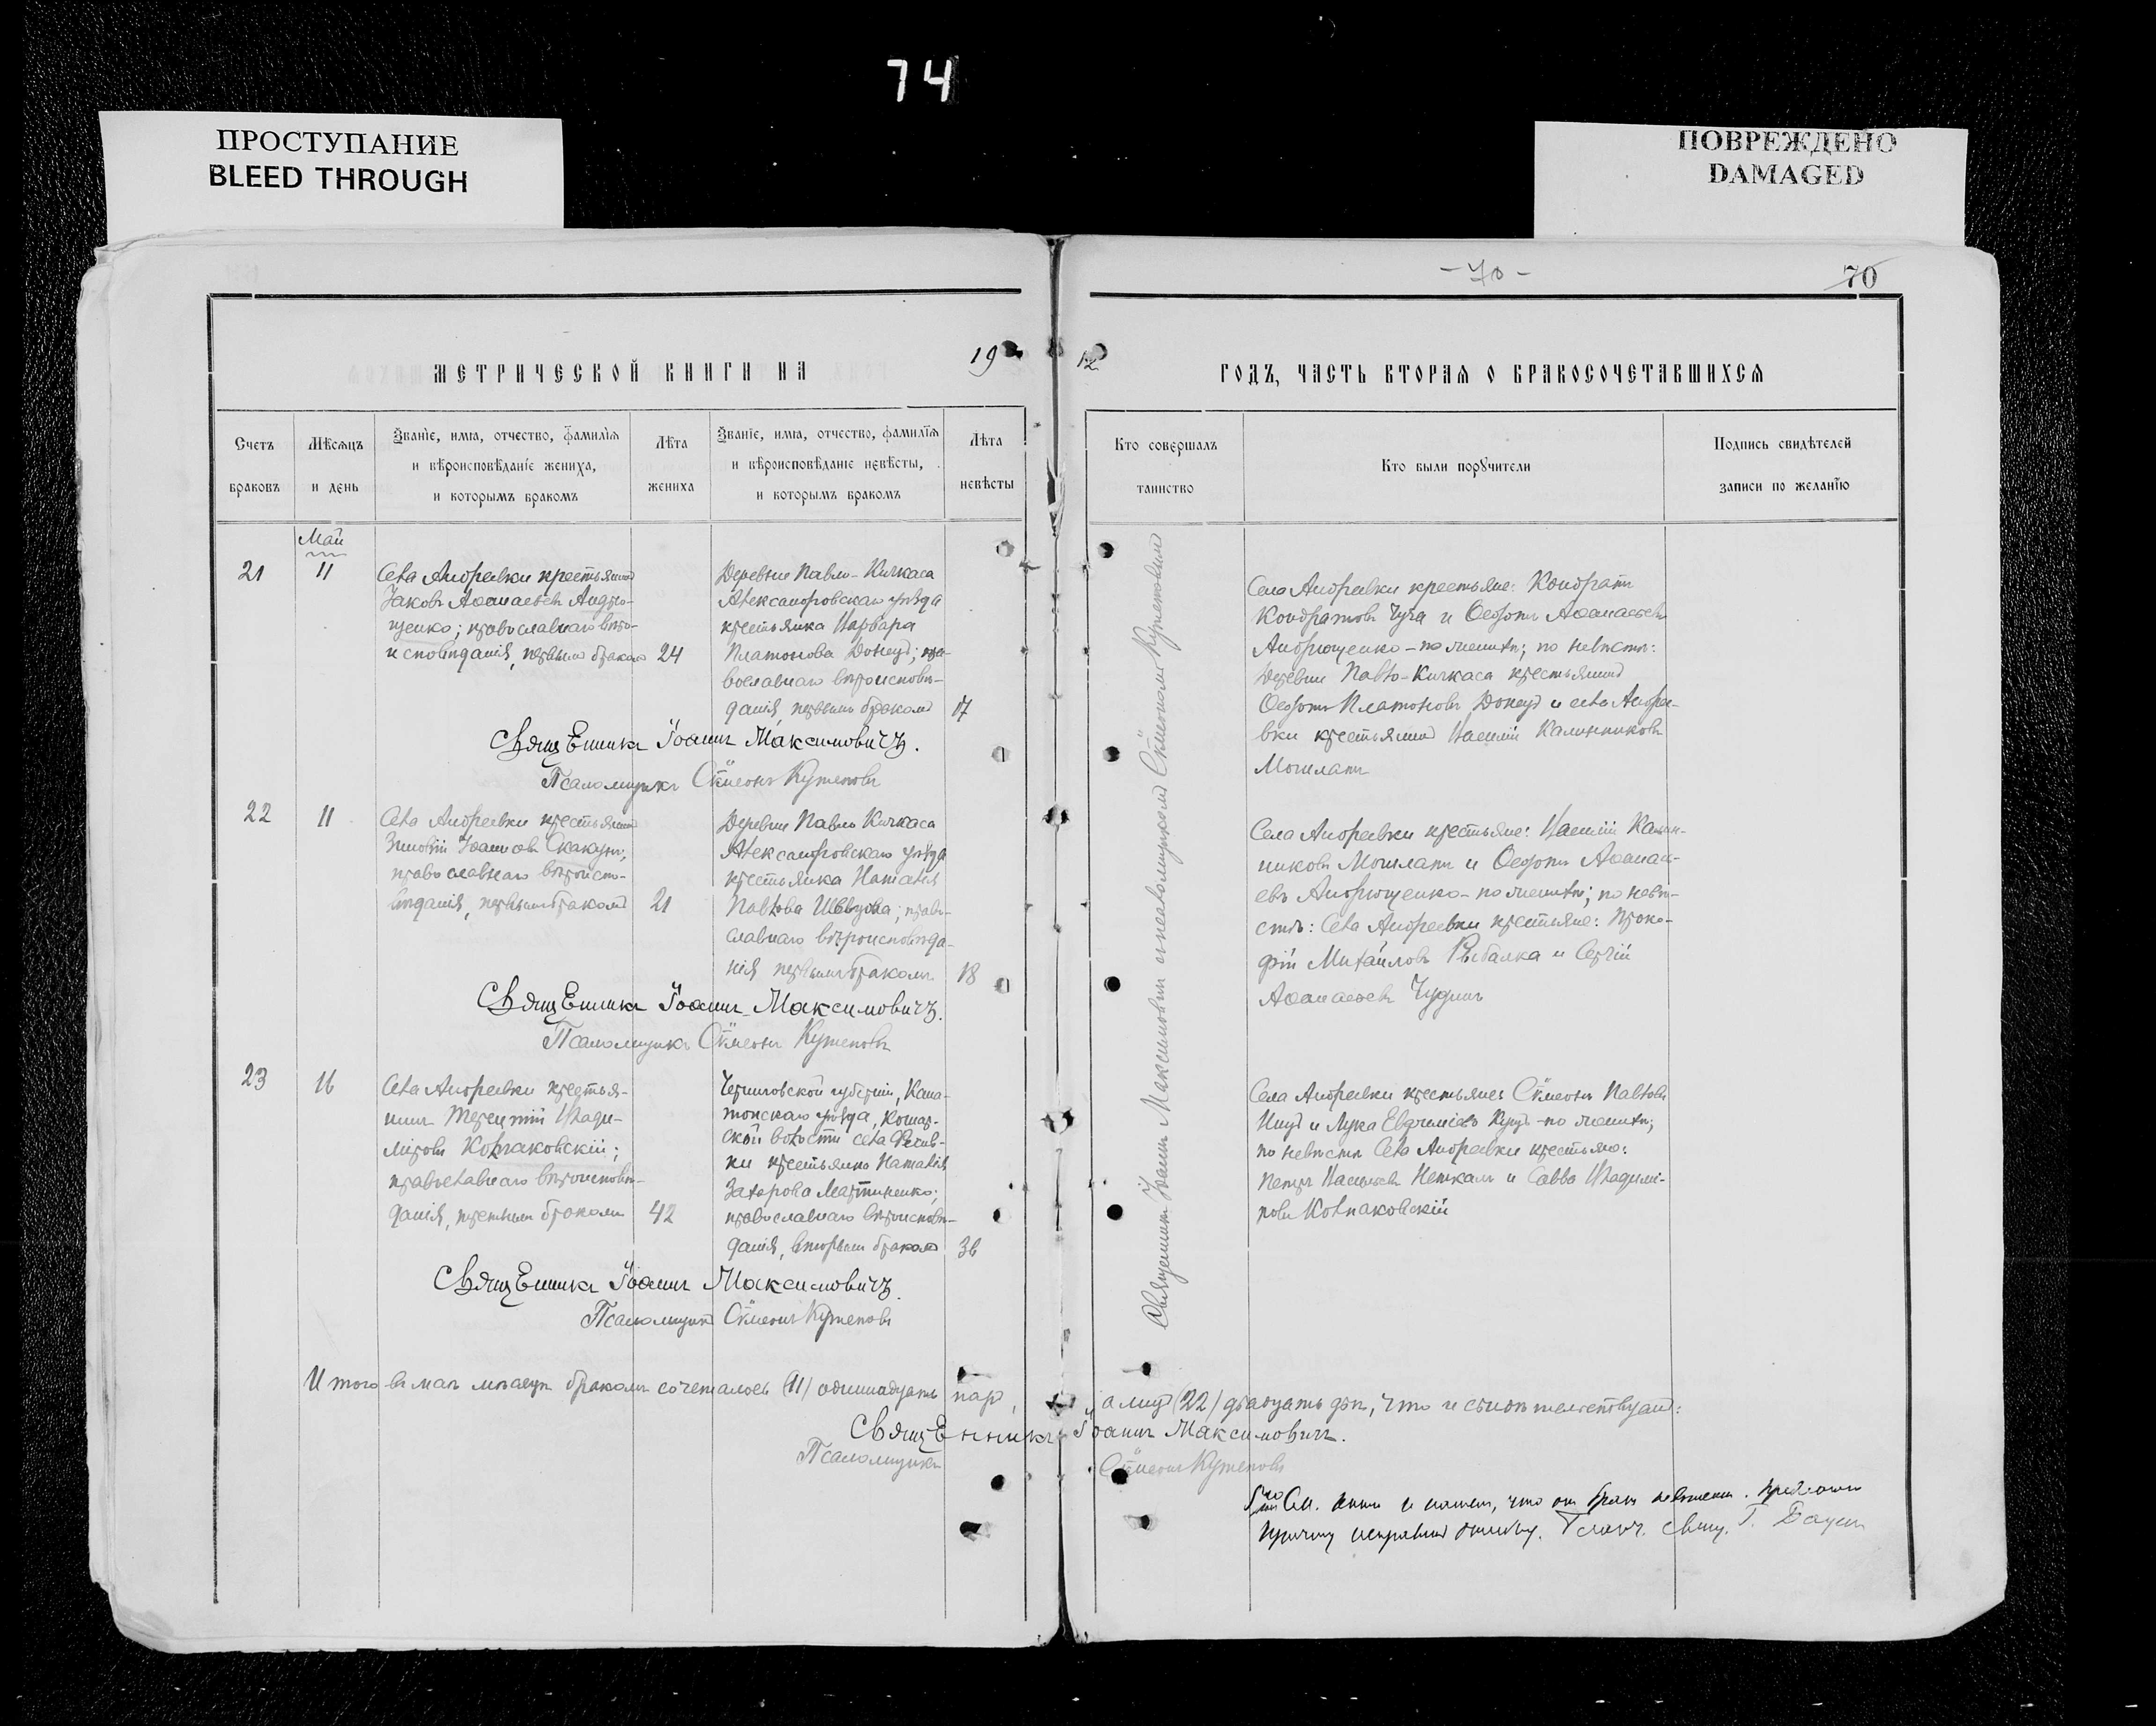 74
ПРОСТУПАНИЕ
BLEED THROUGH
ПОВРЕЖДЕНО
DAMAGED
- 70 -
70
МЕТРИЧЕСКОЙ КНИГИ НА 19
12 ГОДЪ, ЧАСТЬ ВТОРАЯ О БРАКОСОЧЕТАВШИХСЯ
Счетъ браковъ
Мѣсяцъ и день
Званіе, имя, отчество, фамилія
и вѣроисповѣданіе жениха,
и которымъ бракомъ
Лѣта жениха
Званіе, имя, отчество, фамилія
и вѣроисповѣданіе невѣсты,
и которымъ бракомъ
Лѣта невѣсты
Кто совершалъ таинство
Кто были поручители
Подпись свидѣтелей
записи по желанію
Май
21
11
Села Андреевки крестьянинъ
Іаковъ Аѳанасьевъ Андрю-
щенко; православнаго вѣро-
исповѣданія, первымъ бракомъ
24
Деревни Павло-Кичкаса
Александровскаго уѣзда
крестьянка Варвара
Платонова Донецъ; пра-
вославнаго вѣроисповѣ-
данія, первымъ бракомъ
17
Села Андреевки крестьяне: Кондратъ
Кондратовъ Чуча и Ѳеодотъ Аѳанасьевъ
Андрющенко - по женихѣ; по невѣстѣ:
Деревни Павло-Кичкаса крестьянинъ
Ѳеодотъ Платоновъ Донецъ и села Андре-
евки крестьянинъ Василій Калинниковъ
Могилатъ
Священникъ Іоаннъ Максимовичъ.
Псаломщикъ Сѵмеонъ Кутеповъ
22
11
Села Андреевки крестьянинъ
Зиновій Іоанновъ Скакунъ;
православнаго вѣроиспо-
вѣданія, первымъ бракомъ
21
Деревни Павло Кичкаса
Александровскаго уѣзда
крестьянка Наталія
Павлова Шевцова; право-
славнаго вѣроисповѣда-
нія первымъ бракомъ
18
Села Андреевки крестьяне: Василій Калин-
никовъ Могилатъ и Ѳеодотъ Аѳанась-
евъ Андрющенко - по женихѣ; по невѣ-
стѣ: Села Андреевки крестьяне: Проко-
фій Михайловъ Рыбалка и Сергій
Аѳанасьевъ Чудинъ
Священникъ Іоаннъ Максимовичъ.
Псаломщикъ Сѵмеонъ Кутеповъ
23
16
Села Андреевки крестья-
нинъ Терентій Влади-
міровъ Колпаковскій;
православнаго вѣроисповѣ-
данія, третьимъ бракомъ
42
Черниговской губерніи, Коно-
топскаго уѣзда,
волости села
крестьянка Наталія
Захарова Мартыненко;
православнаго вѣроисповѣ-
данія, вторымъ бракомъ
36
Села Андреевки крестьяне: Сѵмеонъ Павловъ
и Лука Евѳиміевъ Куцъ - по женихѣ;
по невѣстѣ Села Андреевки крестьяне:
Петръ Васильевъ и Савва Владимі-
ровъ Колпаковскій
Священникъ Іоаннъ Максимовичъ.
Псаломщикъ Сѵмеонъ Кутеповъ
Священникъ Іоаннъ Максимовичъ съ псаломщикомъ Сѵмеономъ Кутеповымъ
Итого въ маѣ мѣсяцѣ бракомъ сочеталось (11) одиннадцать паръ, а лицъ (22) двадцать два, что и свидѣтельствуемъ:
Священникъ Іоаннъ Максимовичъ.
Псаломщикъ Сѵмеонъ Кутеповъ
что
причту исправить ошибку. свящ.